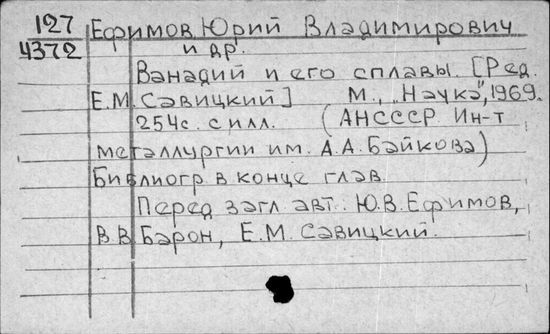 127 Ефимов Юрий Владимирович
4372 и др.
Ванадий и его сплавы. [Ред.
Е.М. Савицкий] М., „Наука", 1969.
254с. с илл. (АНСССР. Ин-т
металлургии им. А.А. Байкова)
Библиогр. в конце глав.
Перед загл. авт.: Ю.В. Ефимов,
В.В. Барон, Е.М. Савицкий.